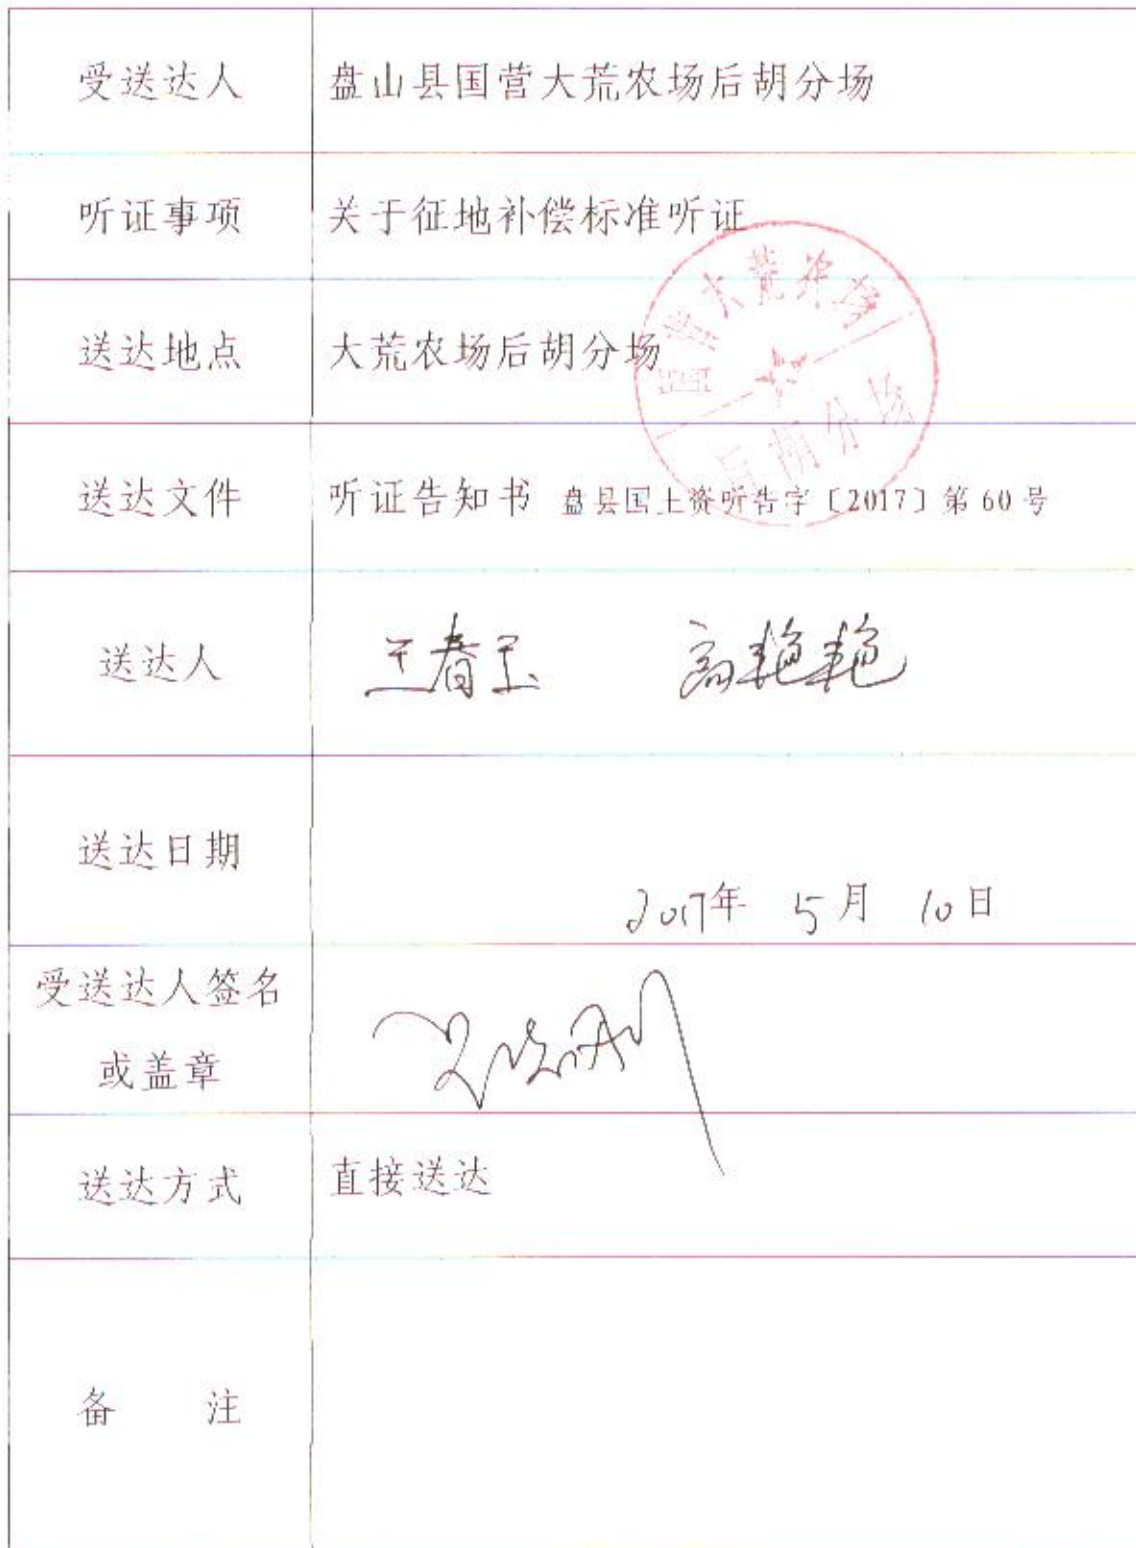 受送达人 盘山县国营大荒农场后胡分场
听证事项 关于征地补偿标准听证
国营大荒农场
后胡分场
送达地点 大荒农场后胡分场
送达文件 听证告知书 盘县国土资听告字〔2017〕第60号
送达人 王春玉 高艳艳
送达日期
2017年 5月 10日
受送达人签名
或盖章
送达方式 直接送达
备 注